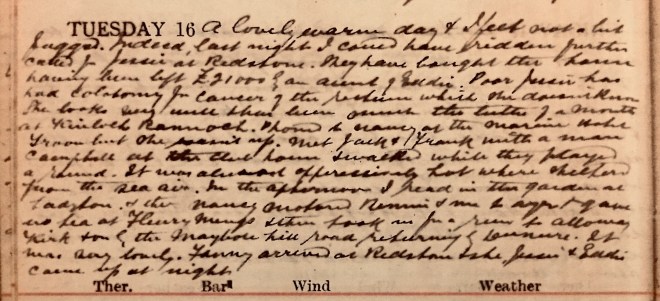 TUESDAY 16 A lovely warm day & I feel not a bit
fagged. Indeed, last night I could have ridden further
called for Jessie at Redstone. They have bought the house
having been left £21000 by an aunt of Eddie. Poor Jessie has
had colotomy for cancer of the rectum which she doesn't know
She looks very well & has been much the better of a month
at Kinloch Rannoch. Phoned to Nancy at the Marine Hotel
Troon but she wasn't up. Met Jack & Frank with a man
Campbell at the club house & walked while they played
a round. It was almost oppressively hot where sheltered
from the sea air. In the afternoon I read in the garden at
& the Nancy motored Rennie & me to Ayr & gave
us tea at Fleury Mungs & then took us for a run to Alloway
Kirk & on by the Maybole hill road returning by Dunure. It
was very lovely. Fanny arrived at Redstone & she Jessie & Eddie
came up at night.
Ther. Barª Wind Weather